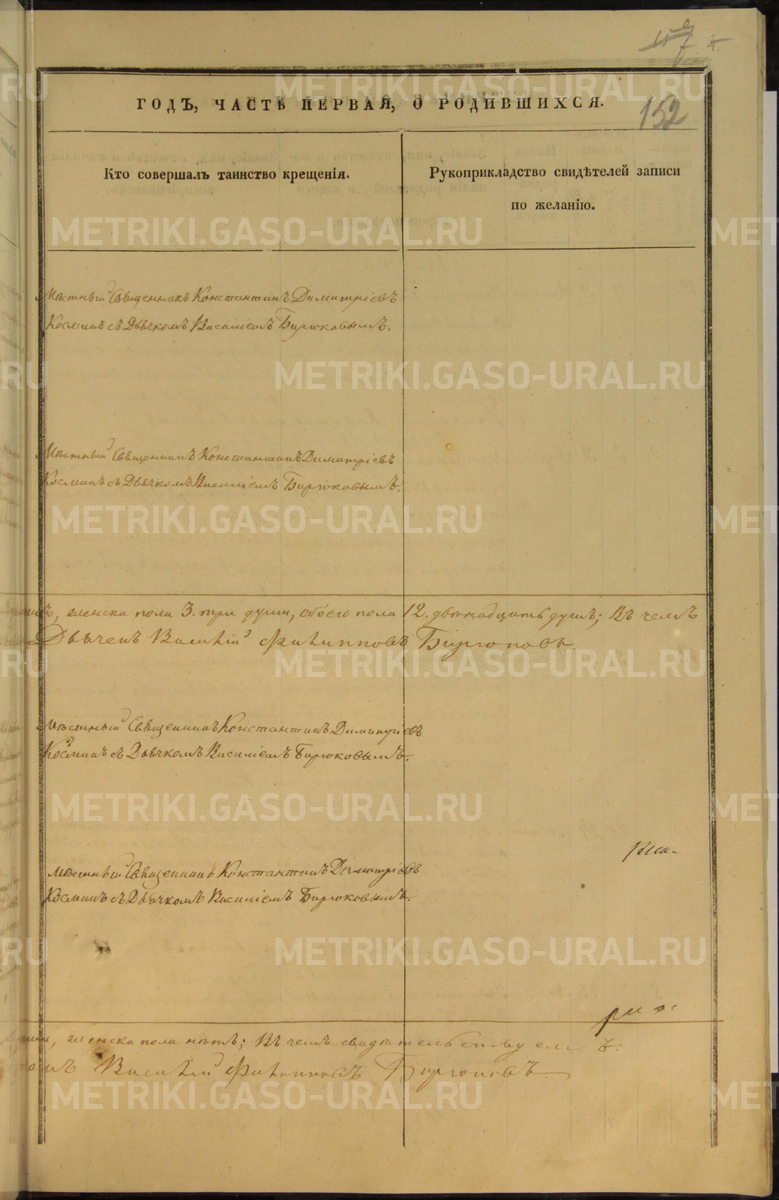 152
ГОДЪ, ЧАСТЬ ПЕРВАЯ, О РОДИВШИХСЯ.
Кто совершалъ таинство крещенія.
Рукоприкладство свидѣтелей записи
по желанію.
Мѣстный Священникъ Константинъ Димитріевъ
Косминъ съ Дьячкомъ Василіемъ Бирюковымъ.
Мѣстный Священникъ Константинъ Димитріевъ
Косминъ съ Дьячкомъ Василіемъ Бирюковымъ.
женска пола 3. три души, обоего пола 12. двѣнадцать душъ; Въ чемъ
Дьячекъ Василій Филипповъ Бирюковъ
Мѣстный Священникъ Константинъ Димитріевъ
Косминъ съ Дьячкомъ Василіемъ Бирюковымъ.
Мѣстный Священникъ Константинъ Димитріевъ
Косминъ съ Дьячкомъ Василіемъ Бирюковымъ.
женска пола нѣтъ; Въ чемъ
Василій Филипповъ Бирюковъ
METRIKI.GASO-URAL.RU